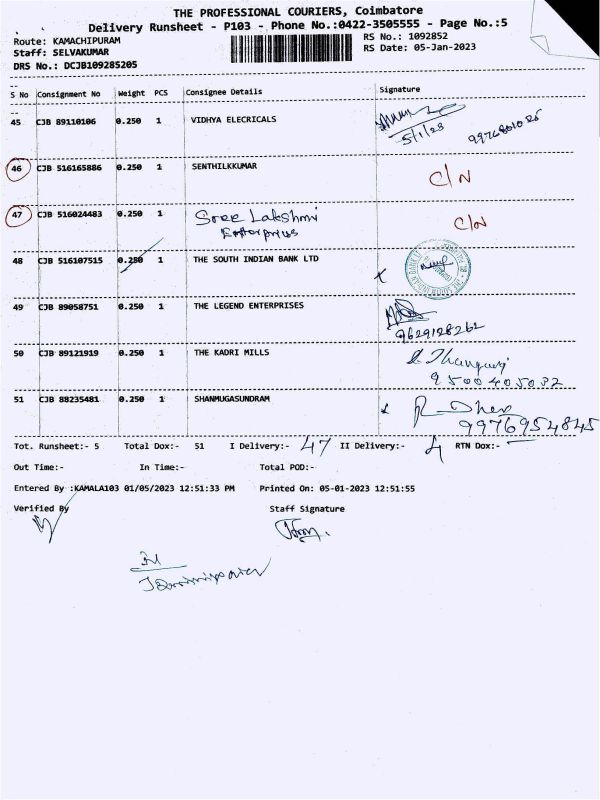 THE PROFESSIONAL COURIERS, Coimbatore
Delivery Runsheet - P103 - Phone No.:0422-3505555 - Page No.:5
Route: KAMACHIPURAM RS No.: 1092852
Staff: SELVAKUMAR RS Date: 05-Jan-2023
DRS No.: DCJB109285205
S No Consignment No Weight PCS Consignee Details Signature
45 CJB 89110106 0.250 1 VIDHYA ELECRICALS
5/1/23
46 CJB 516165886 0.250 1 SENTHILKKUMAR C/N
47 CJB 516024483 0.250 1 Sree Lakshmi C/N
Enterprises
48 CJB 516107515 0.250 1 THE SOUTH INDIAN BANK LTD
49 CJB 89058751 0.250 1 THE LEGEND ENTERPRISES
9629128262
50 CJB 89121919 0.250 1 THE KADRI MILLS
9500405032
51 CJB 88235481 0.250 1 SHANMUGASUNDRAM
9976954845
Tot. Runsheet:- 5 Total Dox:- 51 I Delivery:- 47 II Delivery:- 4 RTN Dox:- —
Out Time:- In Time:- Total POD:-
Entered By :KAMALA103 01/05/2023 12:51:33 PM Printed On: 05-01-2023 12:51:55
Verified By Staff Signature